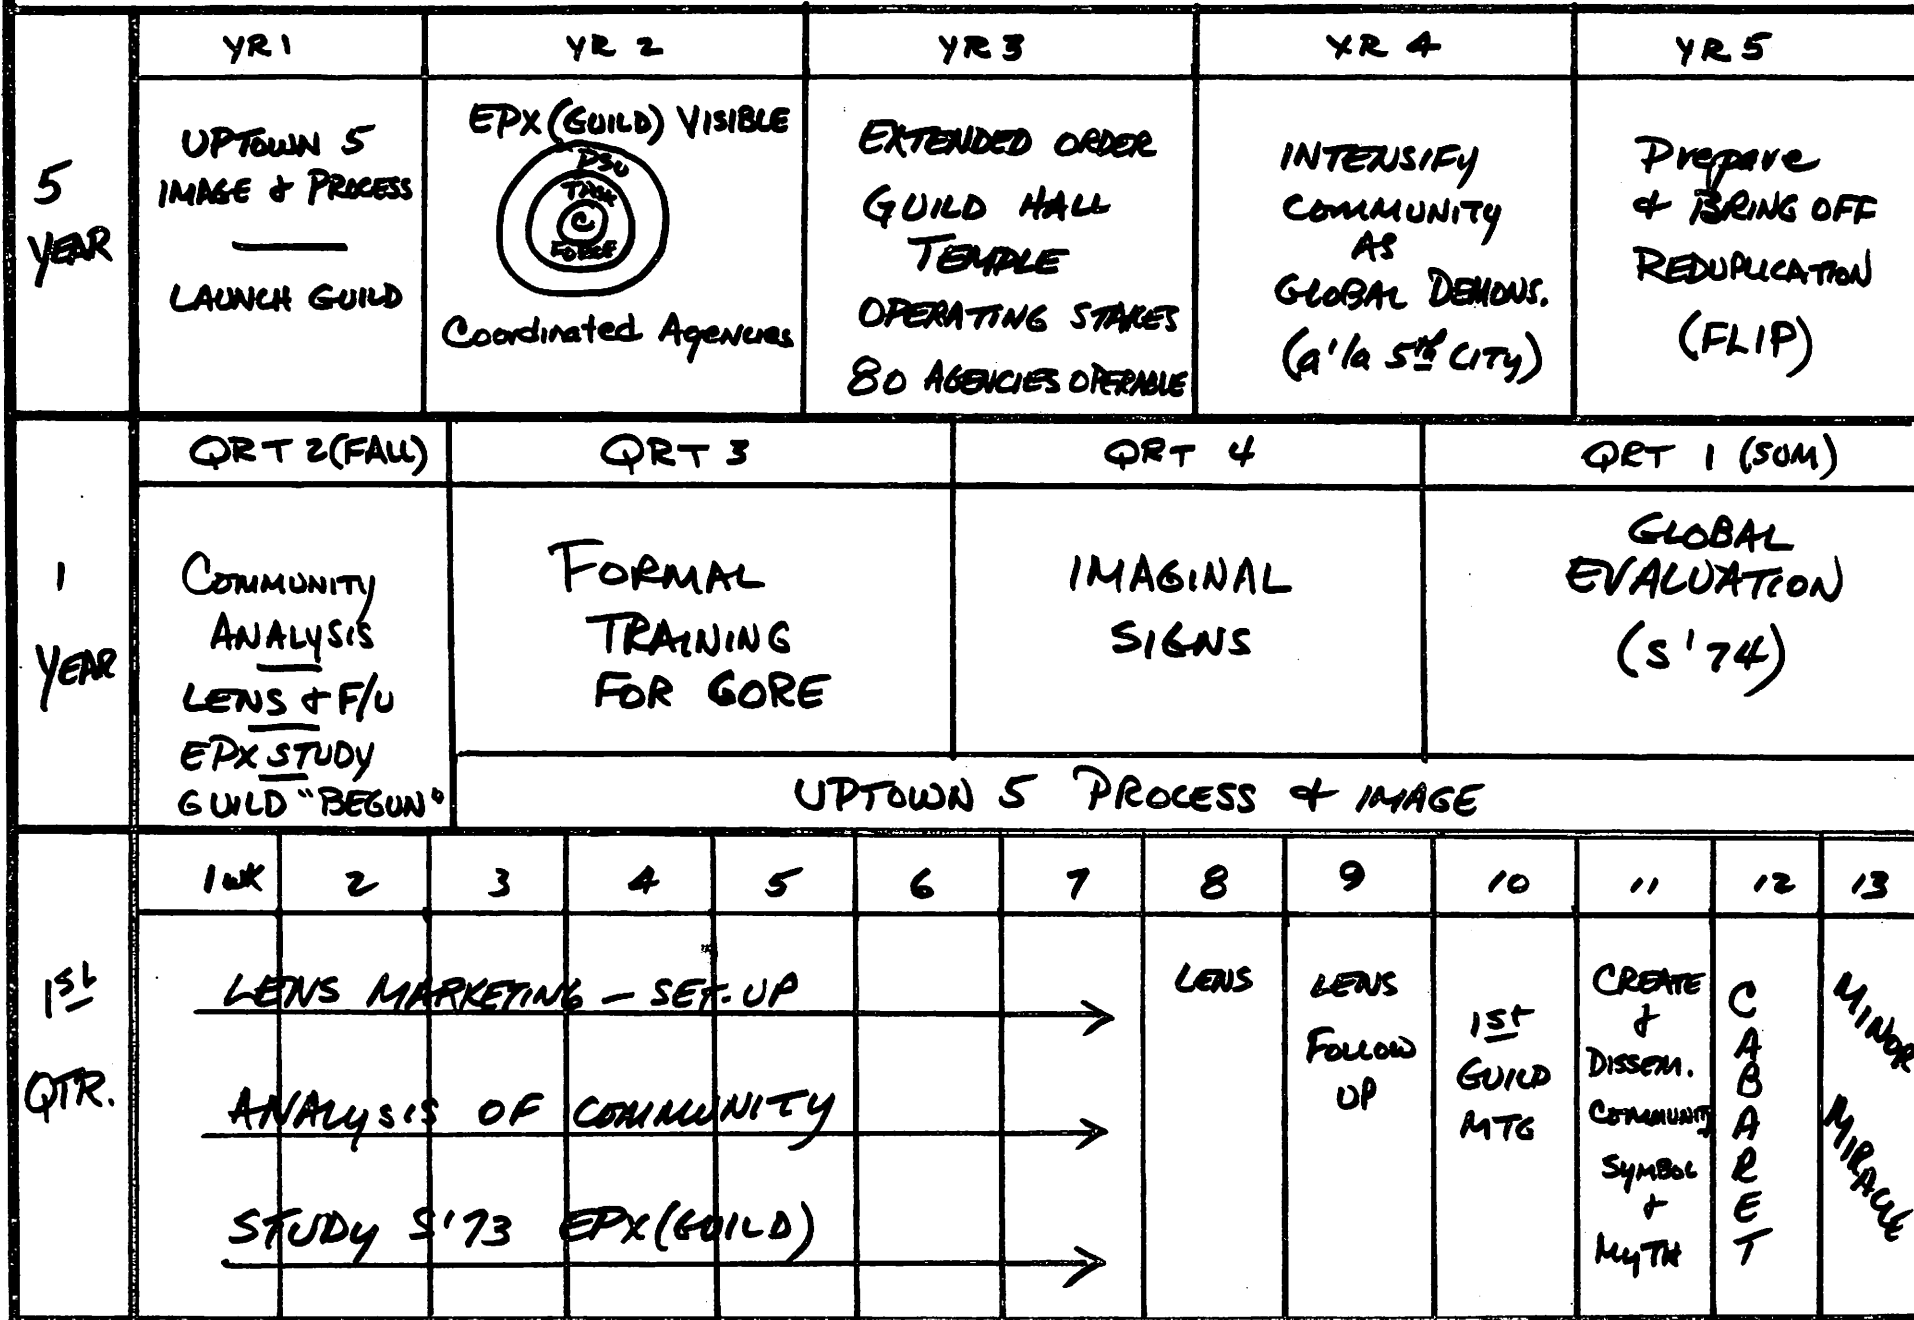 YR 1
YR 2
YR 3
YR 4
YR 5
5
YEAR
UPTOWN 5
IMAGE & PROCESS
LAUNCH GUILD
EPX (GUILD) VISIBLE
PSU
TASK
C
FORCE
Coordinated Agencies
EXTENDED ORDER
GUILD HALL
TEMPLE
OPERATING STAKES
80 AGENCIES OPERABLE
INTENSIFY
COMMUNITY
AS
GLOBAL DEMONS.
(a'la 5th CITY)
Prepare
& BRING OFF
REDUPLICATION
(FLIP)
QRT 2 (FALL)
QRT 3
QRT 4
QRT 1 (SUM)
1
YEAR
COMMUNITY
ANALYSIS
LENS & F/U
EPX STUDY
GUILD "BEGUN"
FORMAL
TRAINING
FOR GORE
IMAGINAL
SIGNS
GLOBAL
EVALUATION
(S'74)
UPTOWN 5 PROCESS & IMAGE
1 WK
2
3
4
5
6
7
8
9
10
11
12
13
1st
QTR.
LENS MARKETING - SET-UP
ANALYSIS OF COMMUNITY
STUDY S'73 EPX (GUILD)
LENS
LENS
FOLLOW
UP
1st
GUILD
MTG
CREATE
&
DISSEM.
COMMUNITY
SYMBOL
&
MYTH
CABARET
MINOR
MIRACLE